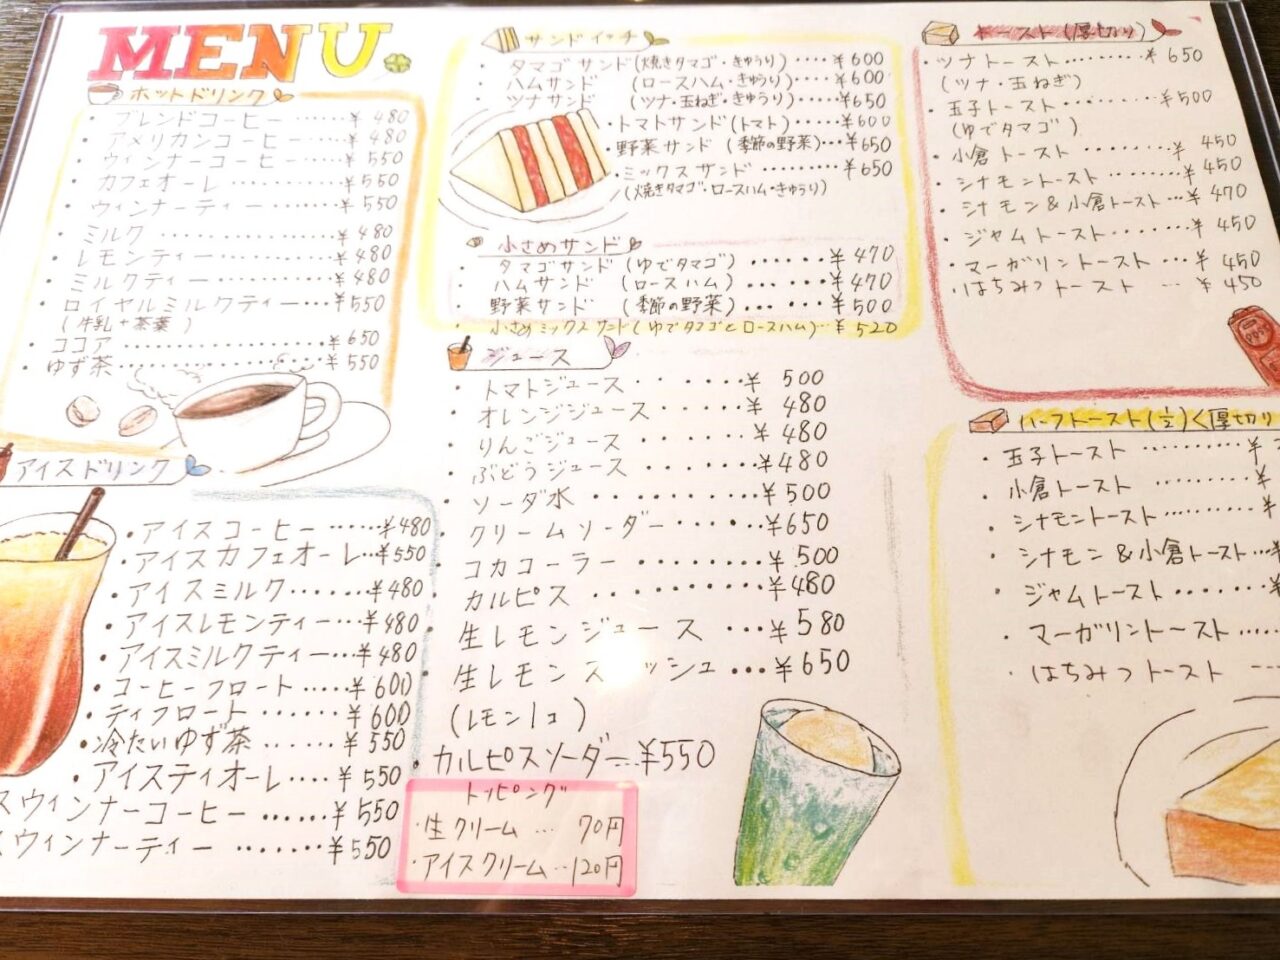 MENU
ホットドリンク
・ブレンドコーヒー ……… ¥480
・アメリカンコーヒー ……… ¥480
・ウィンナーコーヒー ……… ¥550
・カフェオーレ ……… ¥550
・ウィンナーティー ……… ¥550
・ミルク ……… ¥480
・レモンティー ……… ¥480
・ミルクティー ……… ¥480
・ロイヤルミルクティー ……… ¥550
(牛乳+茶葉)
・ココア ……… ¥650
・ゆず茶 ……… ¥550
アイスドリンク
・アイスコーヒー …… ¥480
・アイスカフェオーレ … ¥550
・アイスミルク …… ¥480
・アイスレモンティー … ¥480
・アイスミルクティー … ¥480
・コーヒーフロート …… ¥600
・ティフロート …… ¥600
・冷たいゆず茶 …… ¥550
・アイスティオーレ …… ¥550
スウィンナーコーヒー …… ¥550
ウィンナーティー …… ¥550
サンドイッチ
・タマゴサンド(焼きタマゴ・きゅうり) …… ¥600
・ハムサンド (ロースハム・きゅうり) …… ¥600
・ツナサンド (ツナ・玉ねぎ・きゅうり) …… ¥650
・トマトサンド(トマト) …… ¥600
・野菜サンド (季節の野菜) … ¥650
・ミックスサンド …… ¥650
(焼きタマゴ・ロースハム・きゅうり)
小さめサンド
・タマゴサンド (ゆでタマゴ) …… ¥470
・ハムサンド (ロースハム) …… ¥470
・野菜サンド (季節の野菜) …… ¥500
・小さめミックスサンド(ゆでタマゴとロースハム) … ¥520
ジュース
・トマトジュース …… ¥500
・オレンジジュース …… ¥480
・りんごジュース …… ¥480
・ぶどうジュース …… ¥480
・ソーダ水 …… ¥500
・クリームソーダー …… ¥650
・コカコーラー …… ¥500
・カルピス …… ¥480
・生レモンジュース … ¥580
・生レモンスカッシュ … ¥650
(レモン1コ)
・カルピスソーダー … ¥550
トッピング
・生クリーム … 70円
・アイスクリーム … 120円
トースト(厚切り)
・ツナトースト …… ¥650
(ツナ・玉ねぎ)
・玉子トースト …… ¥500
(ゆでタマゴ)
・小倉トースト …… ¥450
・シナモントースト …… ¥450
・シナモン&小倉トースト … ¥470
・ジャムトースト …… ¥450
・マーガリントースト … ¥450
・はちみつトースト … ¥450
ハーフトースト(1/2)<厚切り
・玉子トースト …… ¥
・小倉トースト …… ¥
・シナモントースト …… ¥
・シナモン&小倉トースト … ¥
・ジャムトースト …… ¥
・マーガリントースト ……
・はちみつトースト …